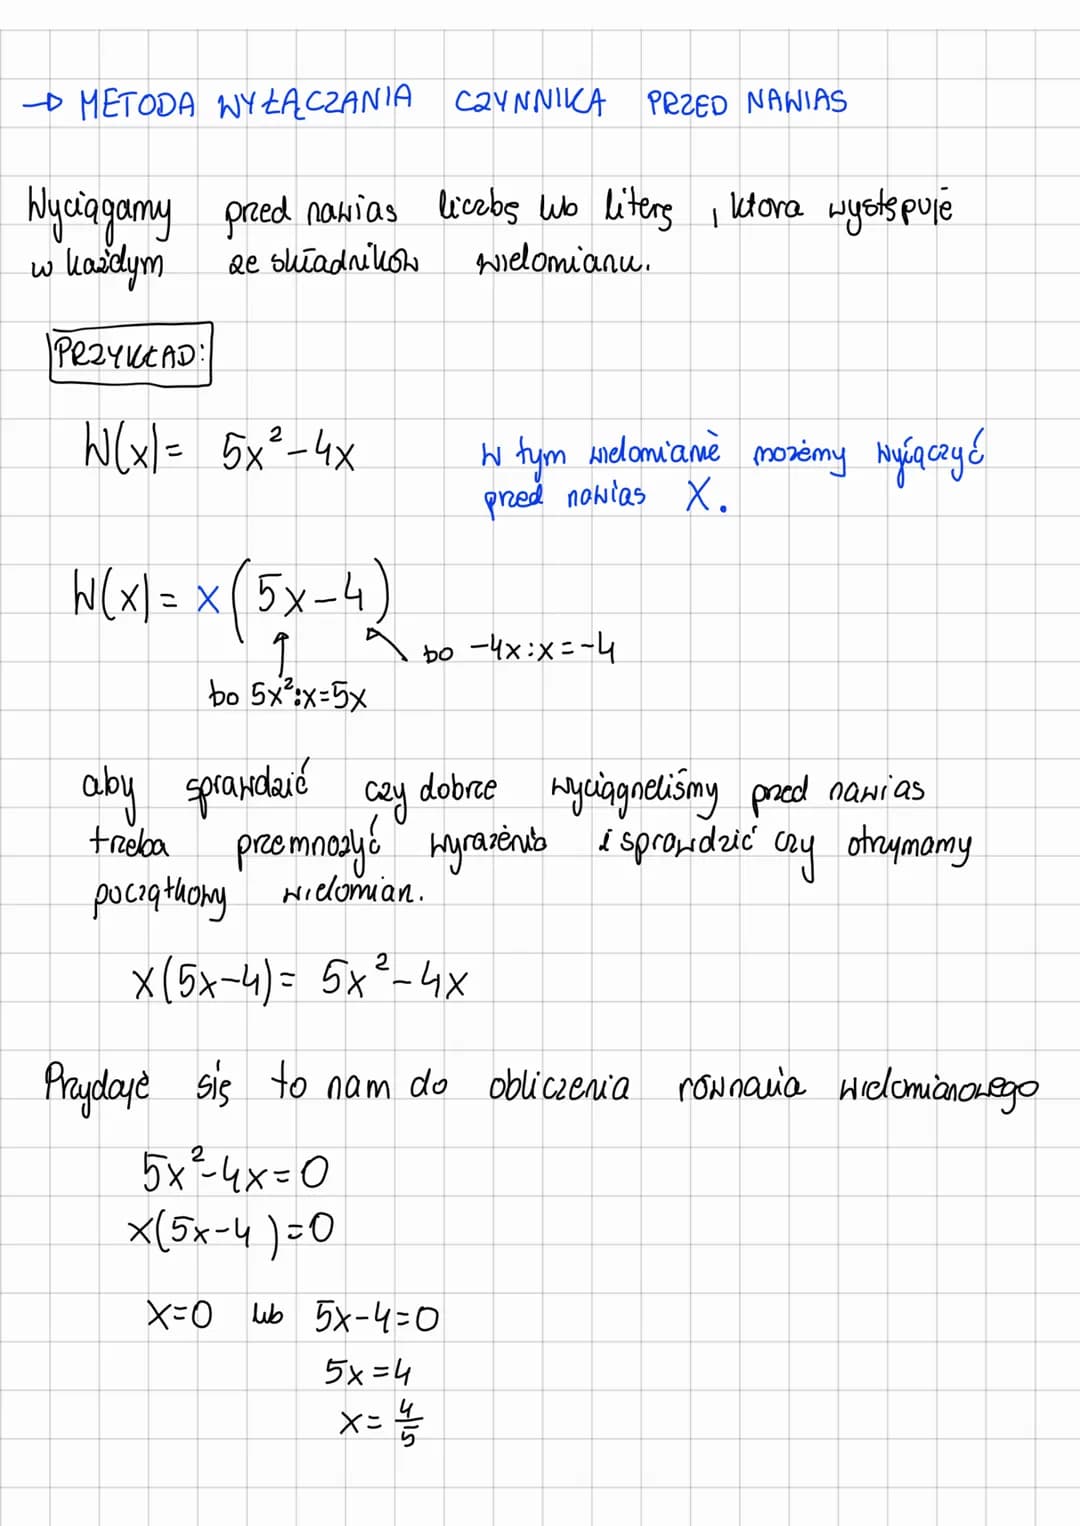 → METODA WYŁĄCZANIA CZYNNIKA PRZED NAWIAS
Wyciągamy przed nawias liczbę lub literę, która występuje
w każdym ze składników wielomianu.
PRZYKŁAD:
W(x)= 5x²-4x
W tym wielomianie możemy wyłączyć
przed nawias X.
W(x)= x(5x-4)
bo -4x:x=-4
bo 5x²:x=5x
aby sprawdzić czy dobrze wyciągneliśmy przed nawias
trzeba przemnożyć wyrażenia i sprawdzić czy otrzymamy
początkowy wielomian.
x(5x-4)= 5x²-4x
Przydaje się to nam do obliczenia równania wielomianowego
5x²-4x=0
x(5x-4)=0
x=0 lub 5x-4=0
5x=4
x=4/5